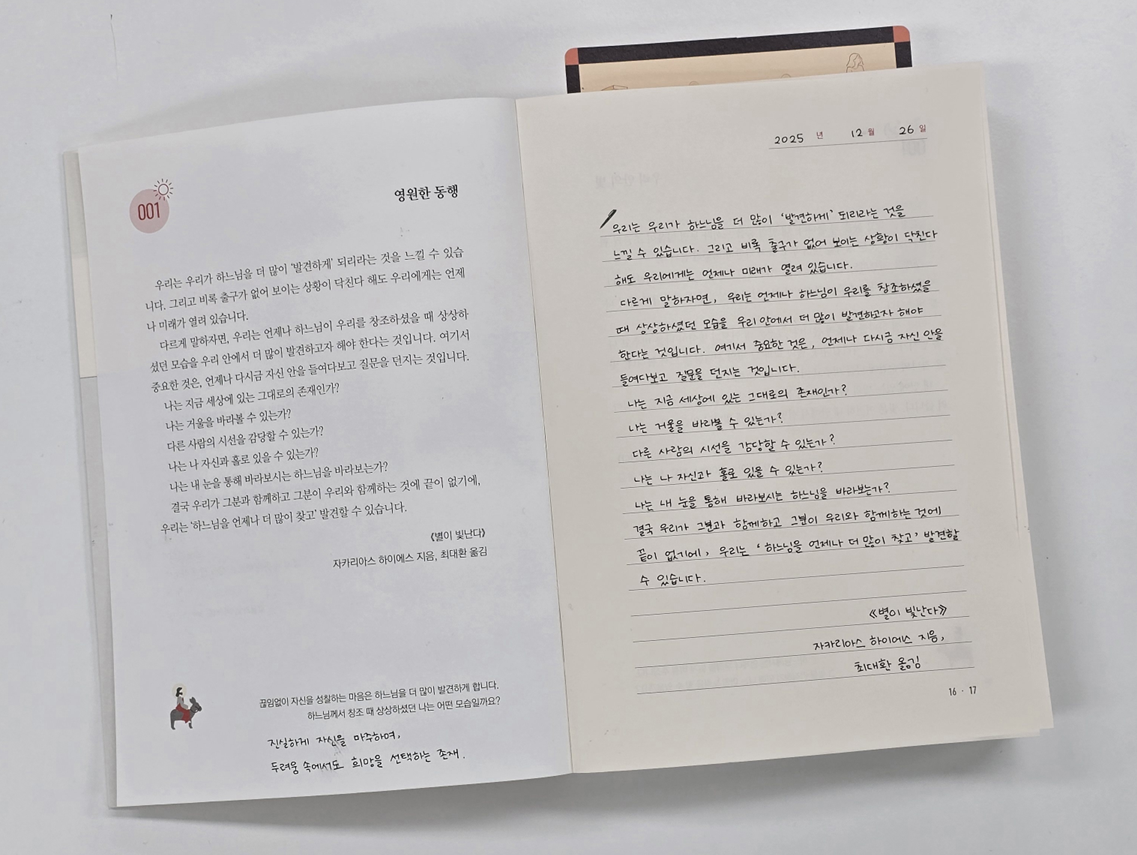 001
영원한 동행
우리는 우리가 하느님을 더 많이 '발견하게' 되리라는 것을 느낄 수 있습
니다. 그리고 비록 출구가 없어 보이는 상황이 닥친다 해도 우리에게는 언제
나 미래가 열려 있습니다.
다르게 말하자면, 우리는 언제나 하느님이 우리를 창조하셨을 때 상상하
셨던 모습을 우리 안에서 더 많이 발견하고자 해야 한다는 것입니다. 여기서
중요한 것은, 언제나 다시금 자신 안을 들여다보고 질문을 던지는 것입니다.
나는 지금 세상에 있는 그대로의 존재인가?
나는 거울을 바라볼 수 있는가?
다른 사람의 시선을 감당할 수 있는가?
나는 나 자신과 홀로 있을 수 있는가?
나는 내 눈을 통해 바라보시는 하느님을 바라보는가?
결국 우리가 그분과 함께하고 그분이 우리와 함께하는 것에 끝이 없기에,
우리는 '하느님을 언제나 더 많이 찾고' 발견할 수 있습니다.
《별이 빛난다》
자카리아스 하이에스 지음, 최대환 옮김
끊임없이 자신을 성찰하는 마음은 하느님을 더 많이 발견하게 합니다.
하느님께서 창조 때 상상하셨던 나는 어떤 모습일까요?
진실하게 자신을 마주하며,
두려움 속에서도 희망을 선택하는 존재.
2025 년 12 월 26 일
우리는 우리가 하느님을 더 많이 '발견하게' 되리라는 것을
느낄 수 있습니다. 그리고 비록 출구가 없어 보이는 상황이 닥친다
해도 우리에게는 언제나 미래가 열려 있습니다.
다르게 말하자면, 우리는 언제나 하느님이 우리를 창조하셨을
때 상상하셨던 모습을 우리 안에서 더 많이 발견하고자 해야
한다는 것입니다. 여기서 중요한 것은, 언제나 다시금 자신 안을
들여다보고 질문을 던지는 것입니다.
나는 지금 세상에 있는 그대로의 존재인가?
나는 거울을 바라볼 수 있는가?
다른 사람의 시선을 감당할 수 있는가?
나는 나 자신과 홀로 있을 수 있는가?
나는 내 눈을 통해 바라보시는 하느님을 바라보는가?
결국 우리가 그분과 함께하고 그분이 우리와 함께하는 것에
끝이 없기에, 우리는 '하느님을 언제나 더 많이 찾고' 발견할
수 있습니다.
《별이 빛난다》
자카리아스 하이에스 지음,
최대환 옮김
16 · 17